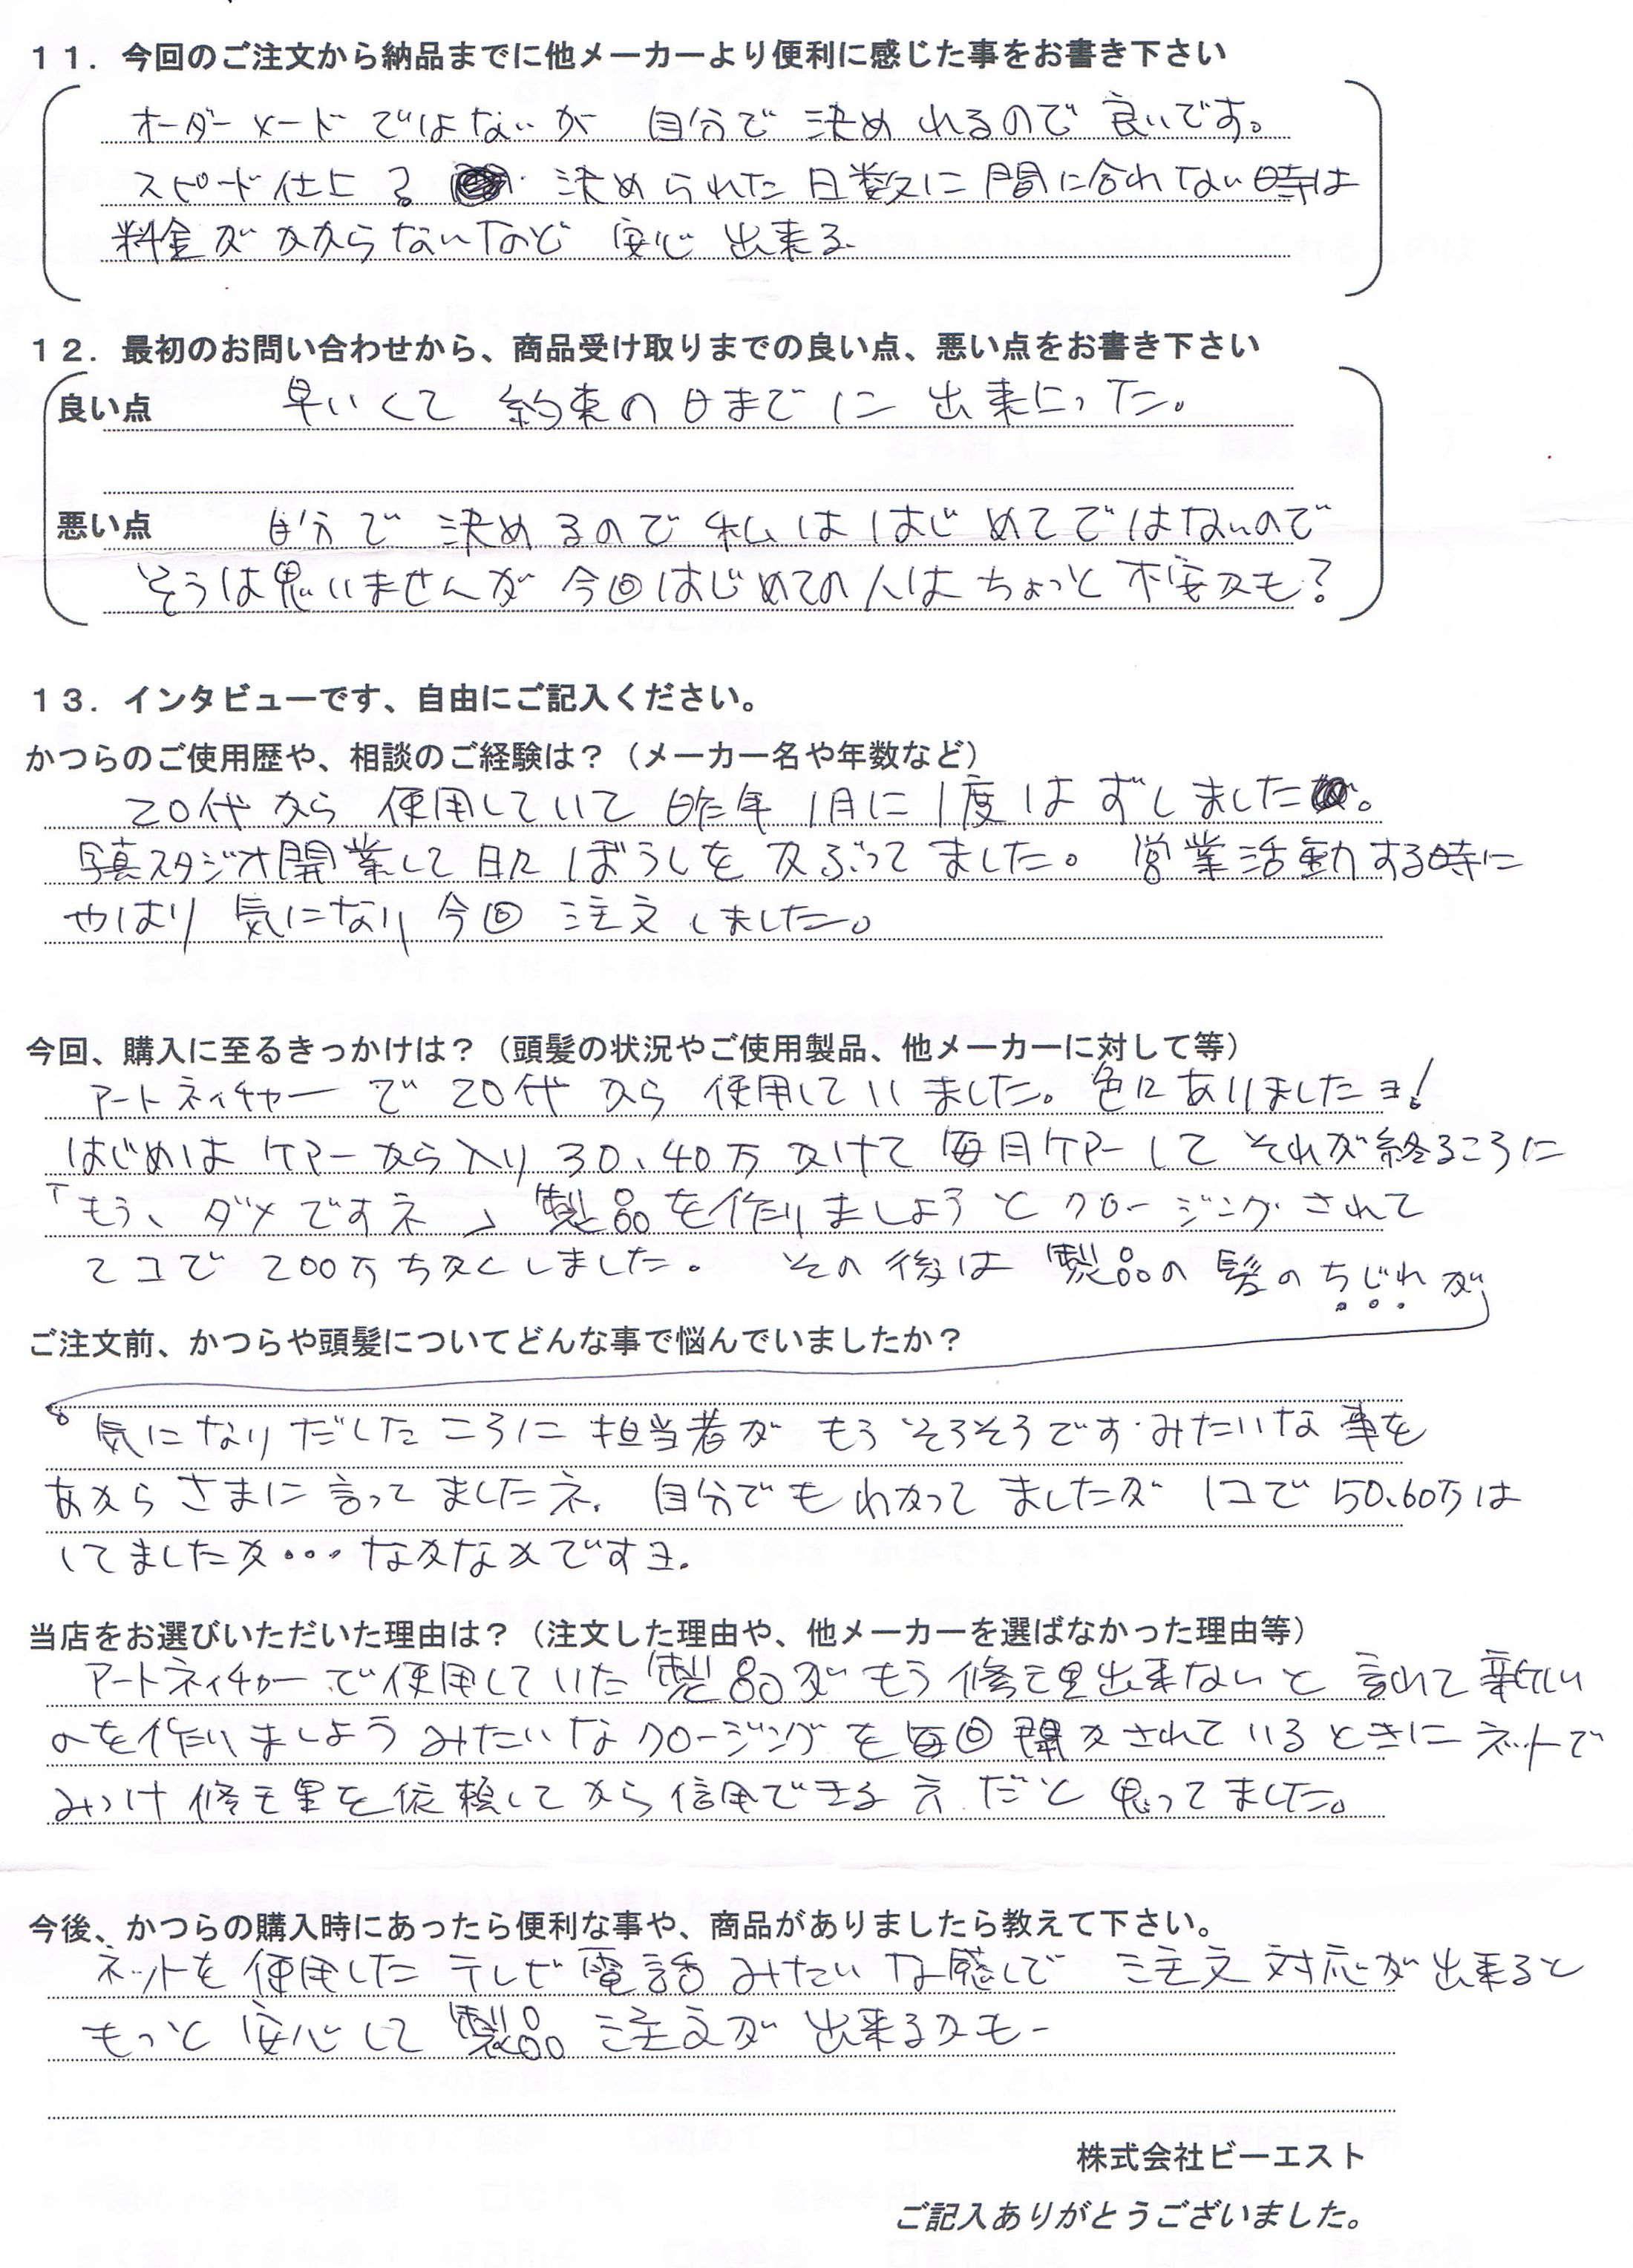 11．今回のご注文から納品までに他メーカーより便利に感じた事をお書き下さい
オーダーメードではないが 自分で決めれるので良いです。
スピード仕上る 決められた日数に間に合れない時は
料金がかからないなど 安心出来る
12．最初のお問い合わせから、商品受け取りまでの良い点、悪い点をお書き下さい
良い点 早いくて 約束の日までに 出来上った。
悪い点 自分で決めるので私は はじめてではないので
そうは思いませんが 今回はじめての人はちょっと不安かも？
13．インタビューです、自由にご記入ください。
かつらのご使用歴や、相談のご経験は？（メーカー名や年数など）
20代から使用していて昨年1月に1度はずしました。
写真スタジオ開業して日々ぼうしをかぶってました。営業活動する時に
やはり気になり今回注文しました。
今回、購入に至るきっかけは？（頭髪の状況やご使用製品、他メーカーに対して等）
アートネイチャーで20代から使用していました。色々ありましたヨ！
はじめはケアーから入り30、40万かけて毎月ケアーしてそれが終るころに
「もう、ダメですネ」製品を作りましようとクロージングされて
2コで200万ちかくしました。その後は製品の髪のちぢれが
ご注文前、かつらや頭髪についてどんな事で悩んでいましたか？
気になりだしたころに担当者がもうそろそろです・みたいな事を
あからさまに言ってましたネ。自分でもわかってましたが1コで50、60万は
してましたか・・・なかなかですヨ。
当店をお選びいただいた理由は？（注文した理由や、他メーカーを選ばなかった理由等）
アートネイチャーで使用していた製品がもう修理出来ないと言われて新しい
のを作りましようみたいなクロージングを毎回聞かされているときにネットで
みつけ修理を依頼してから信用できるだと思ってました。
今後、かつらの購入時にあったら便利な事や、商品がありましたら教えて下さい。
ネットを使用したテレビ電話みたいな感じで注文対応が出来ると
もっと安心して製品注文が出来るかもー
株式会社ビーエスト
ご記入ありがとうございました。